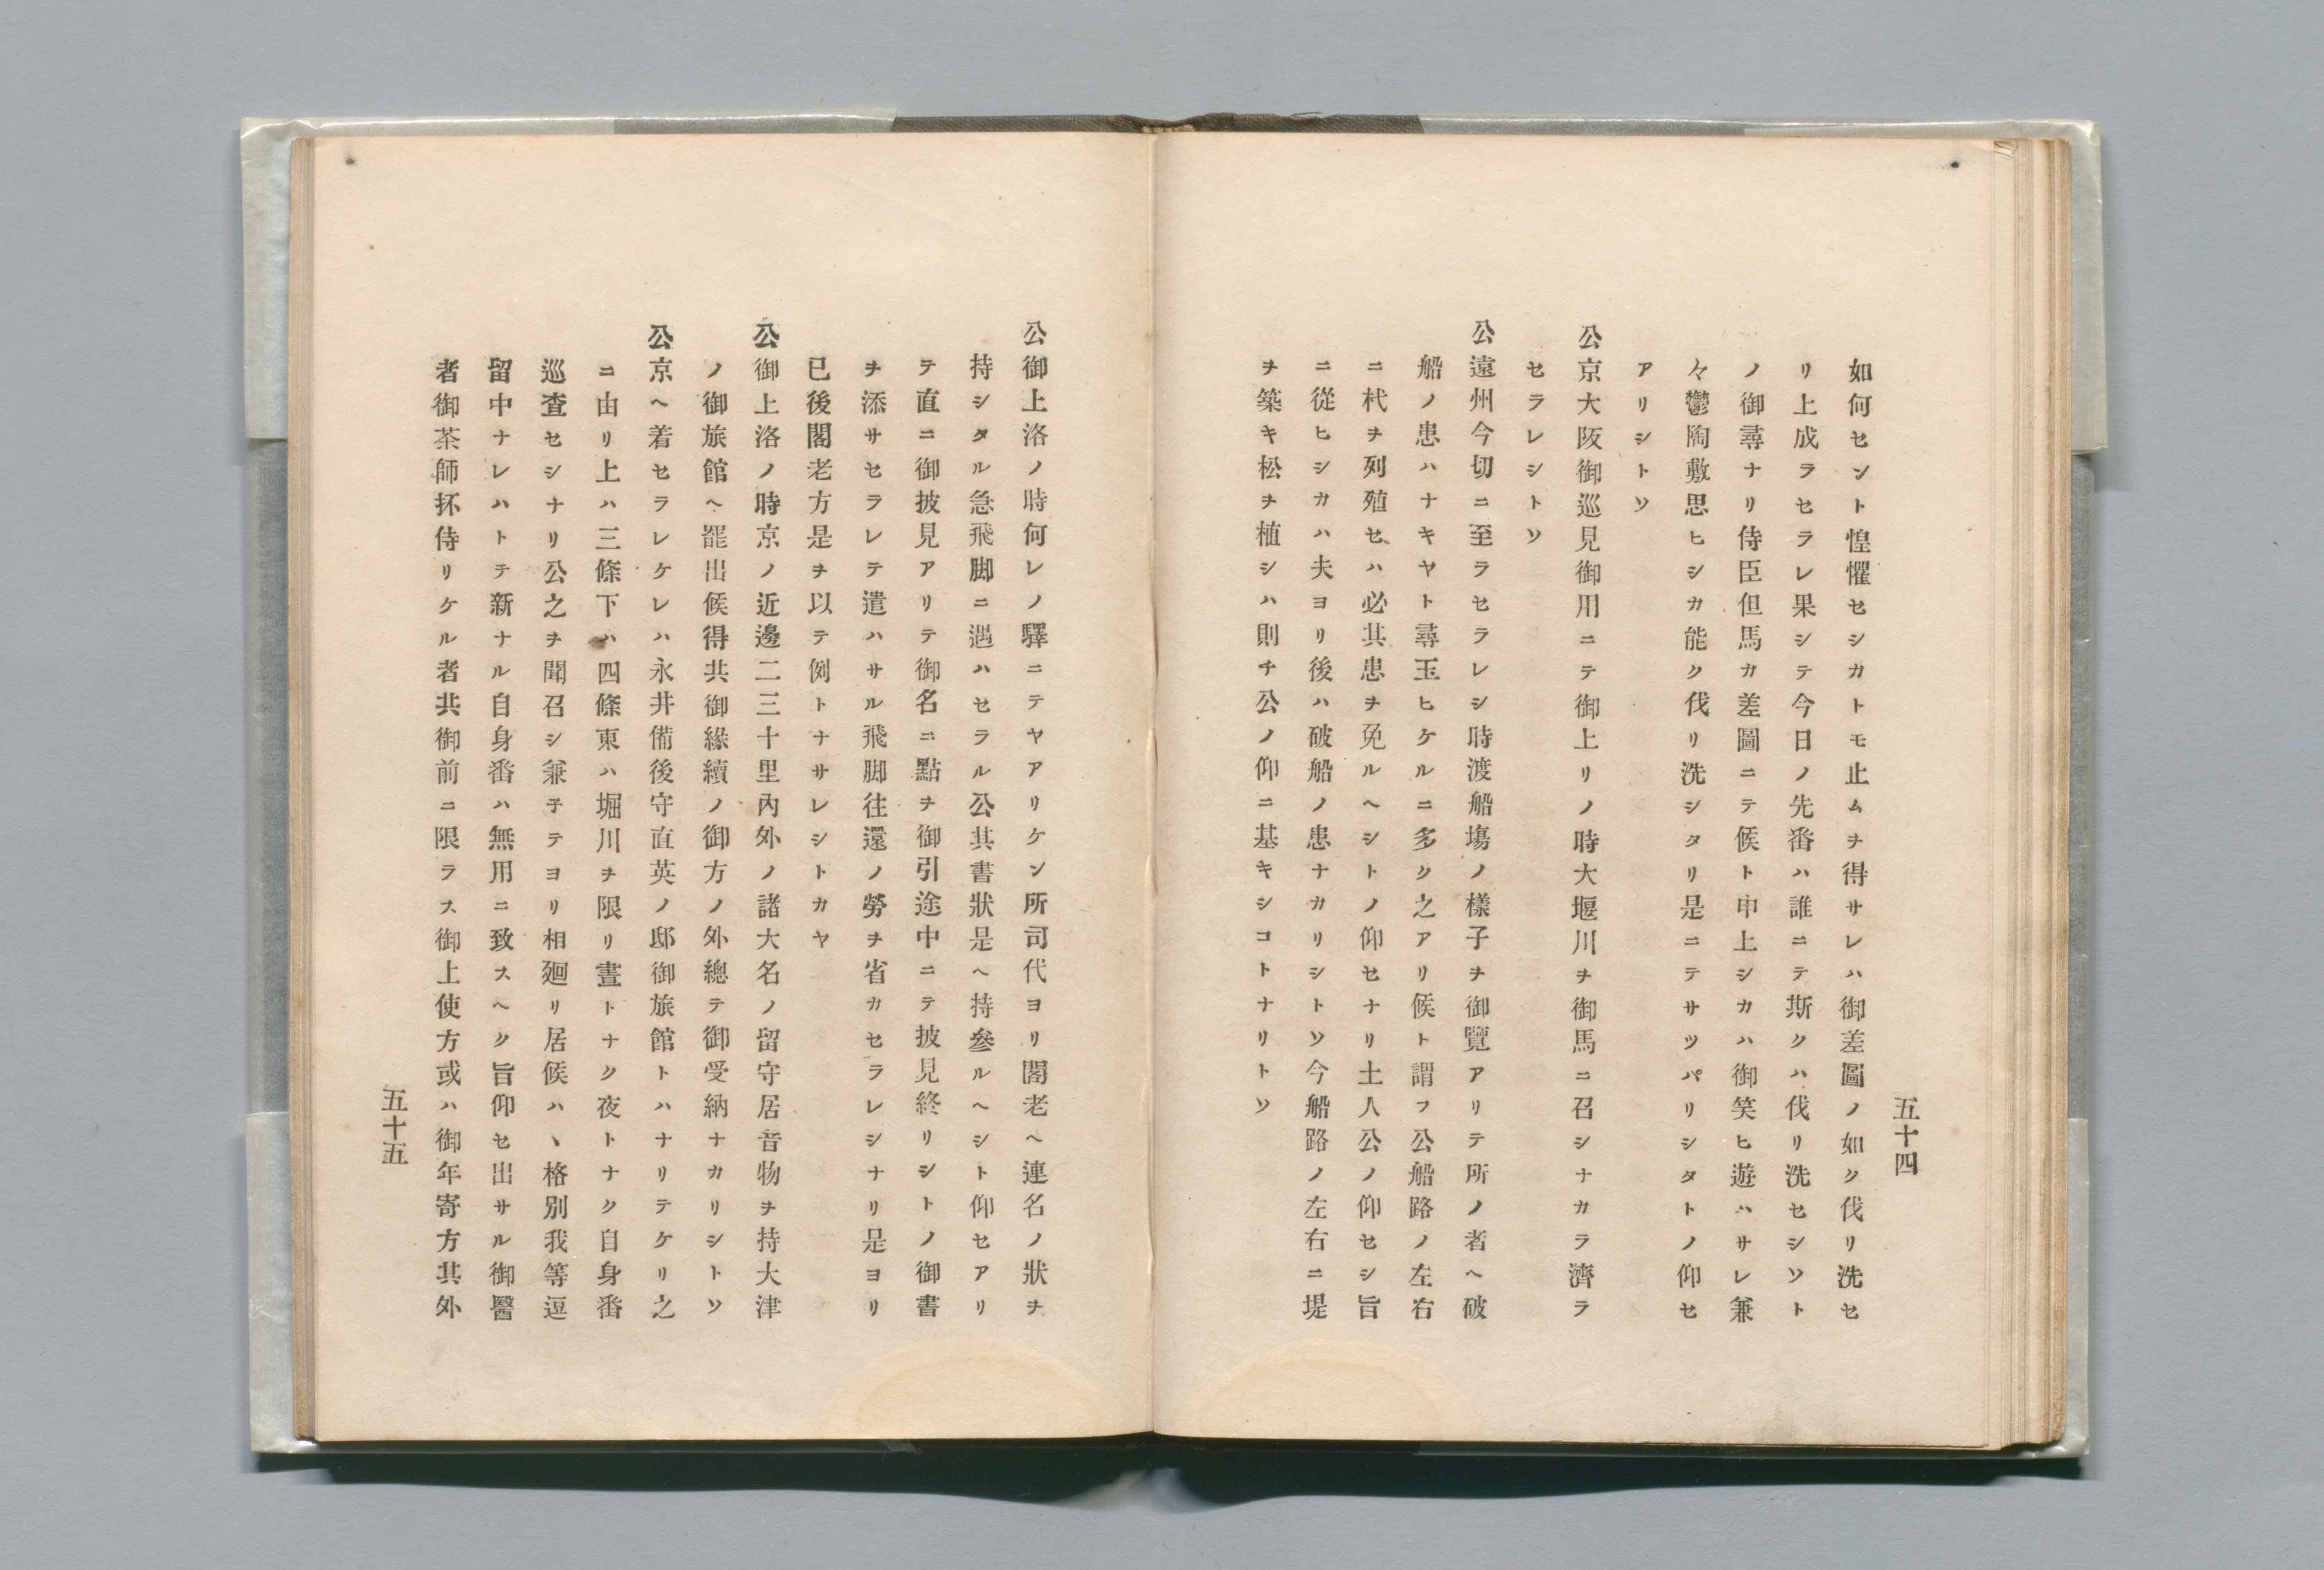 五十四
如何セント惶懼セシカトモ止ムヲ得サレハ御差圖ノ如ク伐リ洗セ
リ上成ラセラレ果シテ今日ノ先番ハ誰ニテ斯クハ伐リ洗セシソト
ノ御尋ナリ侍臣但馬カ差圖ニテ候ト申上シカハ御笑ヒ遊ハサレ兼
々鬱陶敷思ヒシカ能ク伐リ洗シタリ是ニテサツパリシタトノ仰セ
アリシトソ
公京大阪御巡見御用ニテ御上リノ時大堰川ヲ御馬ニ召シナカラ濟ラ
セラレシトソ
公遠州今切ニ至ラセラレシ時渡船塲ノ樣子ヲ御覽アリテ所ノ者ヘ破
船ノ患ハナキヤト尋玉ヒケルニ多ク之アリ候ト謂フ公船路ノ左右
ニ杙ヲ列殖セハ必其患ヲ免ルヘシトノ仰セナリ土人公ノ仰セシ旨
ニ從ヒシカハ夫ヨリ後ハ破船ノ患ナカリシトソ今船路ノ左右ニ堤
ヲ築キ松ヲ植シハ則チ公ノ仰ニ基キシコトナリトソ
公御上洛ノ時何レノ驛ニテヤアリケン所司代ヨリ閣老ヘ連名ノ狀ヲ
持シタル急飛脚ニ遇ハセラル公其書狀是ヘ持參ルヘシト仰セアリ
テ直ニ御披見アリテ御名ニ點ヲ御引途中ニテ披見終リシトノ御書
ヲ添サセラレテ遣ハサル飛脚往還ノ勞ヲ省カセラレシナリ是ヨリ
已後閣老方是ヲ以テ例トナサレシトカヤ
公御上洛ノ時京ノ近邊二三十里內外ノ諸大名ノ留守居音物ヲ持大津
ノ御旅館ヘ罷出候得共御緣續ノ御方ノ外總テ御受納ナカリシトソ
公京ヘ着セラレケレハ永井備後守直英ノ邸御旅館トハナリテケリ之
ニ由リ上ハ三條下ハ四條東ハ堀川ヲ限リ晝トナク夜トナク自身番
巡査セシナリ公之ヲ聞召シ兼子テヨリ相廻リ居候ハヽ格別我等逗
留中ナレハトテ新ナル自身番ハ無用ニ致スヘク旨仰セ出サル御醫
者御茶師抔侍リケル者共御前ニ限ラス御上使方或ハ御年寄方其外
五十五